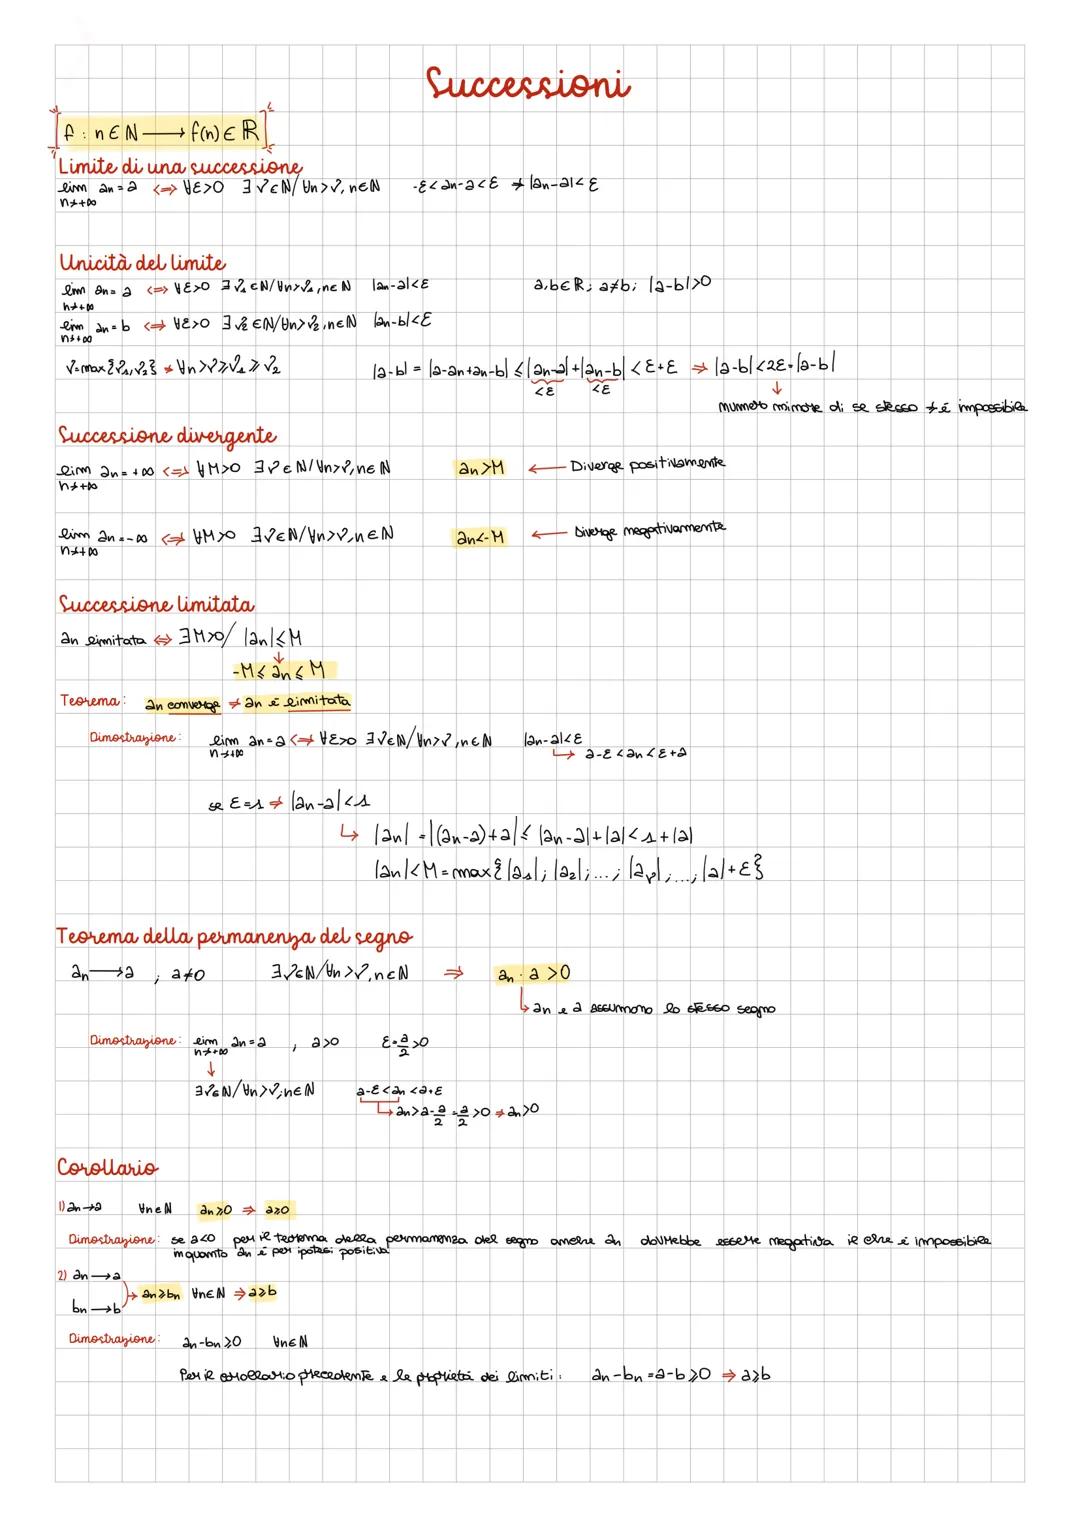 Successioni
f : n ∈ N ⟶ f(n) ∈ R
Limite di una successione
lim an = a <=> ∀ε>0 ∃ν∈N/∀n>ν, n∈N -ε<an-a<ε => |an-a|<ε
n→+∞
Unicità del limite
lim an = a <=> ∀ε>0 ∃ν₁∈N/∀n>ν₁, n∈N |an-a|<ε a,b∈R; a≠b; |a-b|>0
n→+∞
lim an = b <=> ∀ε>0 ∃ν₂∈N/∀n>ν₂, n∈N |an-b|<ε
n→+∞
ν=max{ν₁,ν₂} => ∀n>ν≥ν₁≥ν₂ |a-b| = |a-an+an-b| ≤ |an-a|+|an-b| < ε+ε => |a-b|<2ε=|a-b|
<ε <ε ↓
numero minore di se stesso => è impossibile
Successione divergente
lim an = +∞ <=> ∀M>0 ∃ν∈N/∀n>ν, n∈N an>M ← Diverge positivamente
n→+∞
lim an = -∞ <=> ∀M>0 ∃ν∈N/∀n>ν, n∈N an<-M ← Diverge negativamente
n→+∞
Successione limitata
an limitata <=> ∃M>0/ |an|≤M
↓
-M ≤ an ≤ M
Teorema: an converge => an è limitata
Dimostrazione: lim an = a <=> ∀ε>0 ∃ν∈N/∀n>ν, n∈N |an-a|<ε
n→+∞ ↳ a-ε<an<ε+a
se ε=1 => |an-a|<1
↳ |an| = |(an-a)+a| ≤ |an-a|+|a| < 1+|a|
|an|<M = max{|a₁|; |a₂|; ...; |aν|; ...; |a|+ε}
Teorema della permanenza del segno
an ⟶ a ; a≠0 ∃ν∈N/∀n>ν, n∈N => an · a > 0
↳ an e a assumono lo stesso segno
Dimostrazione: lim an = a , a>0 ε=a/2>0
n→+∞
↓
∃ν∈N/∀n>ν, n∈N a-ε<an<a+ε
↳ an>a-a/2=a/2>0 => an>0
Corollario
1) an→a ∀n∈N an≥0 => a≥0
Dimostrazione: se a<0 per il teorema della permanenza del segno anche an dovrebbe essere negativa il che è impossibile
in quanto an è per ipotesi positiva
2) an ⟶ a
→ an≥bn ∀n∈N => a≥b
bn ⟶ b
Dimostrazione: an-bn≥0 ∀n∈N
Per il corollario precedente e le proprietà dei limiti: an-bn=a-b≥0 => a≥b